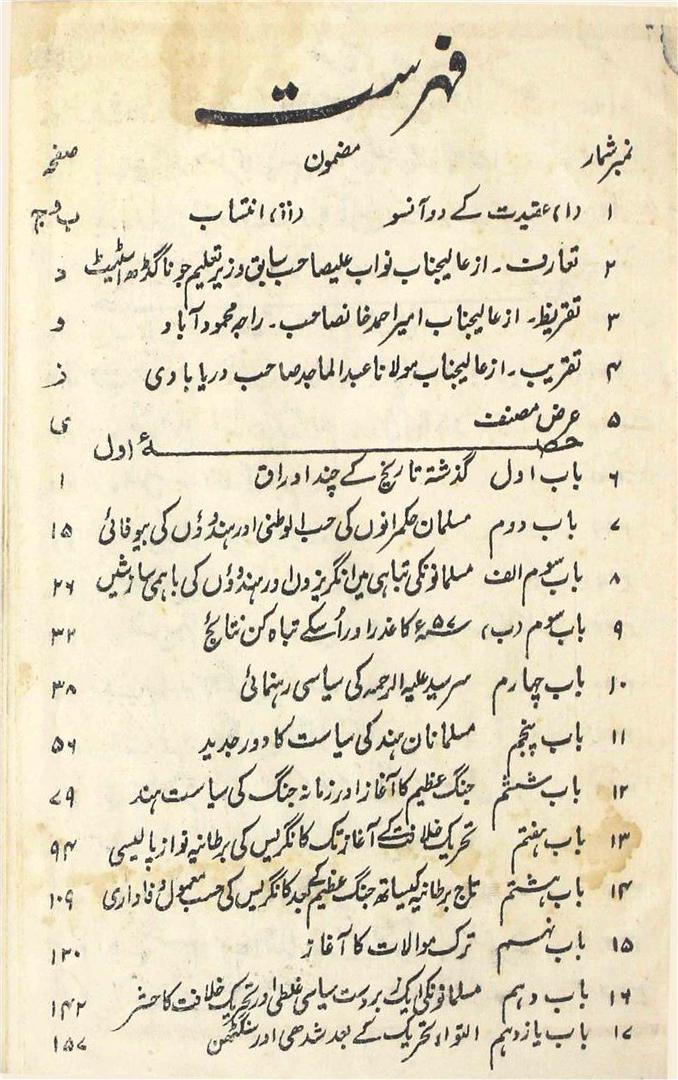 فہرست
نمبر شمار مضمون صفحہ
۱ (i) عقیدت کے دو آنسو (ii) انتساب ب و ج
۲ تعارف۔ از عالیجناب نواب علیصاحب سابق وزیر تعلیم جوناگڈھ اسٹیٹ د
۳ تقریظ۔ از عالیجناب امیر احمد خانصاحب۔ راجہ محمود آباد و
۴ تقریب۔ از عالیجناب مولانا عبدالماجد صاحب دریابادی ز
۵ عرض مصنف ی
حصۂ اول
۶ باب اول گذشتہ تاریخ کے چند اوراق ۱
۷ باب دوم مسلمان حکمرانوں کی حب الوطنی اور ہندوؤں کی بیوفائی ۱۵
۸ باب سوم الف مسلمانونکی تباہی میں انگریزوں اور ہندوؤں کی باہمی سازشیں ۲۶
۹ باب سوم (ب) ۵۷ء کا غدر اور اُسکے تباہ کن نتائج ۳۲
۱۰ باب چہارم سرسید علیہ الرحمہ کی سیاسی رہنمائی ۳۸
۱۱ باب پنجم مسلمانان ہند کی سیاست کا دور جدید ۵۶
۱۲ باب ششم جنگ عظیم کا آغاز اور زمانہ جنگ کی سیاست ہند ۷۹
۱۳ باب ہفتم تحریک خلافت کے آغاز تک کانگریس کی برطانیہ نواز پالیسی ۹۴
۱۴ باب ہشتم تاج برطانیہ کیساتھ جنگ عظیم کے بعد کانگریس کی حسب معمول وفاداری ۱۰۹
۱۵ باب نہم ترک موالات کا آغاز ۱۲۰
۱۶ باب دہم مسلمانونکی ایک زبردست سیاسی غلطی اور تحریک خلافت کا حشر ۱۴۲
۱۷ باب یازدہم التواء تحریک کے بعد شدھی اور سنگھٹن ۱۵۷